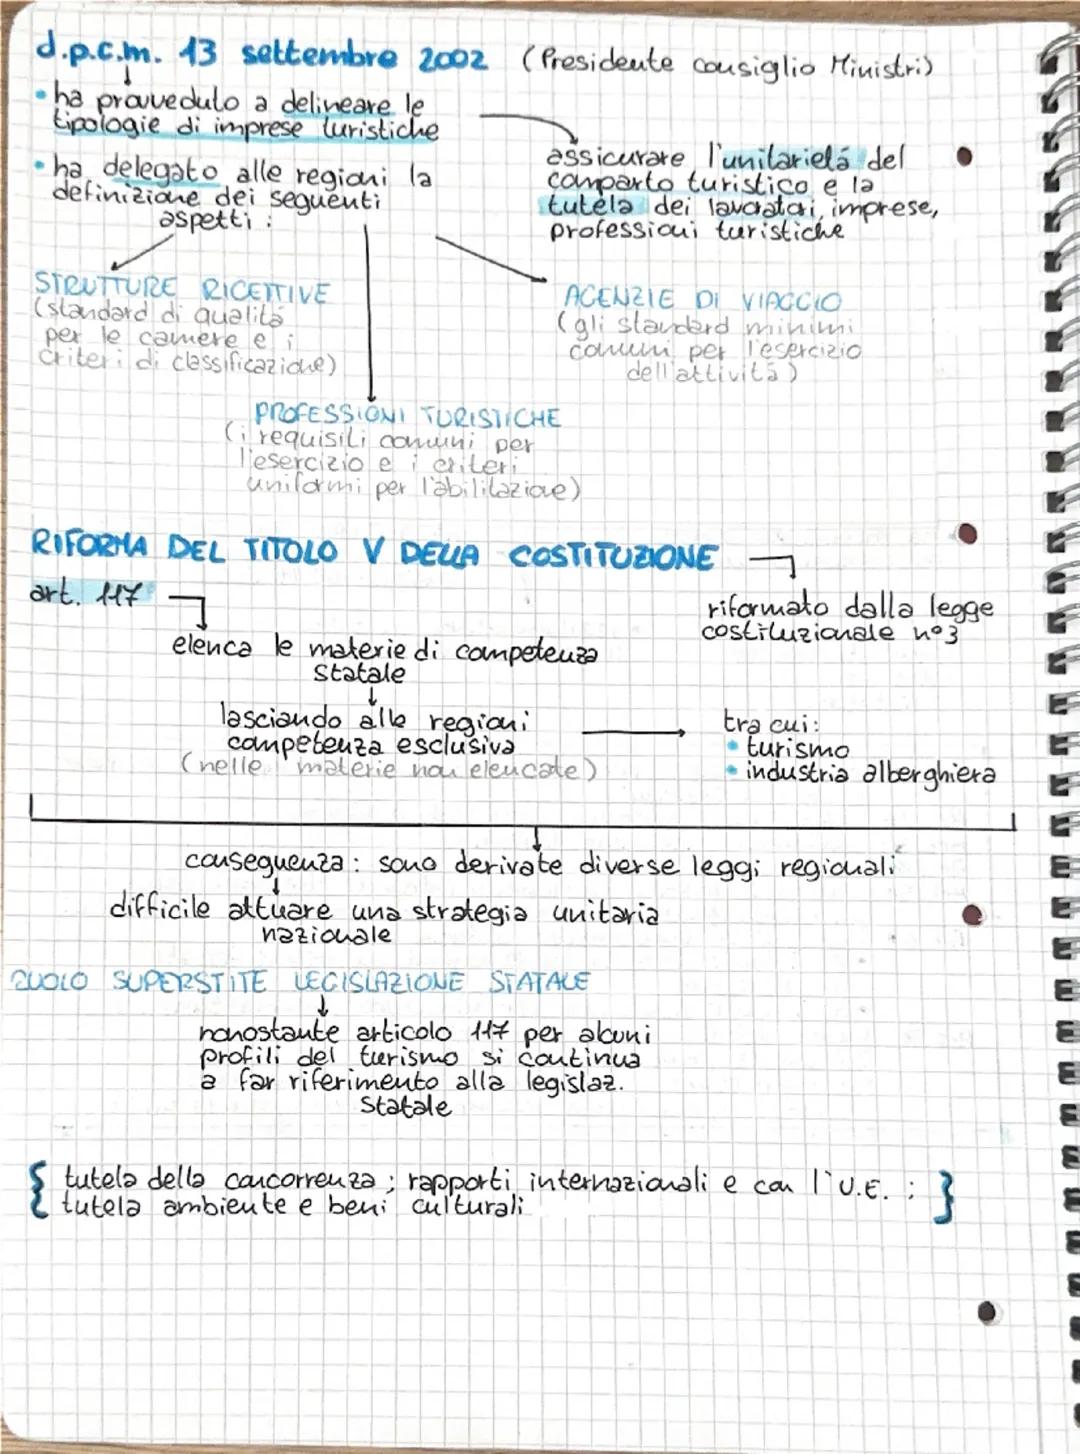 d.p.c.m. 13 settembre 2002 (Presidente consiglio Ministri)
• ha provveduto a delineare le
tipologie di imprese turistiche
assicurare l'unitarietá del
comparto turistico e la
tutela dei lavoratori, imprese,
professioni turistiche
• ha delegato alle regioni la
definizione dei seguenti
aspetti :
STRUTTURE RICETTIVE
(standard di qualitá
per le camere e i
criteri di classificazione)
AGENZIE DI VIAGGIO
(gli standard minimi
comuni per l'esercizio
dell'attivitá)
PROFESSIONI TURISTICHE
(i requisiti comuni per
l'esercizio e i criteri
uniformi per l'abilitazione)
RIFORMA DEL TITOLO V DELLA COSTITUZIONE
riformato dalla legge
costituzionale n°3
art. 117
elenca le materie di competenza
statale
lasciando alle regioni
competenza esclusiva
(nelle materie non elencate)
tra cui:
• turismo
• industria alberghiera
conseguenza: sono derivate diverse leggi regionali
difficile attuare una strategia unitaria
nazionale
RUOLO SUPERSTITE LEGISLAZIONE STATALE
nonostante articolo 117 per alcuni
profili del turismo si continua
a far riferimento alla legislaz.
statale
{ tutela della concorrenza ; rapporti internazionali e con l'U.E. ; }
tutela ambiente e beni culturali